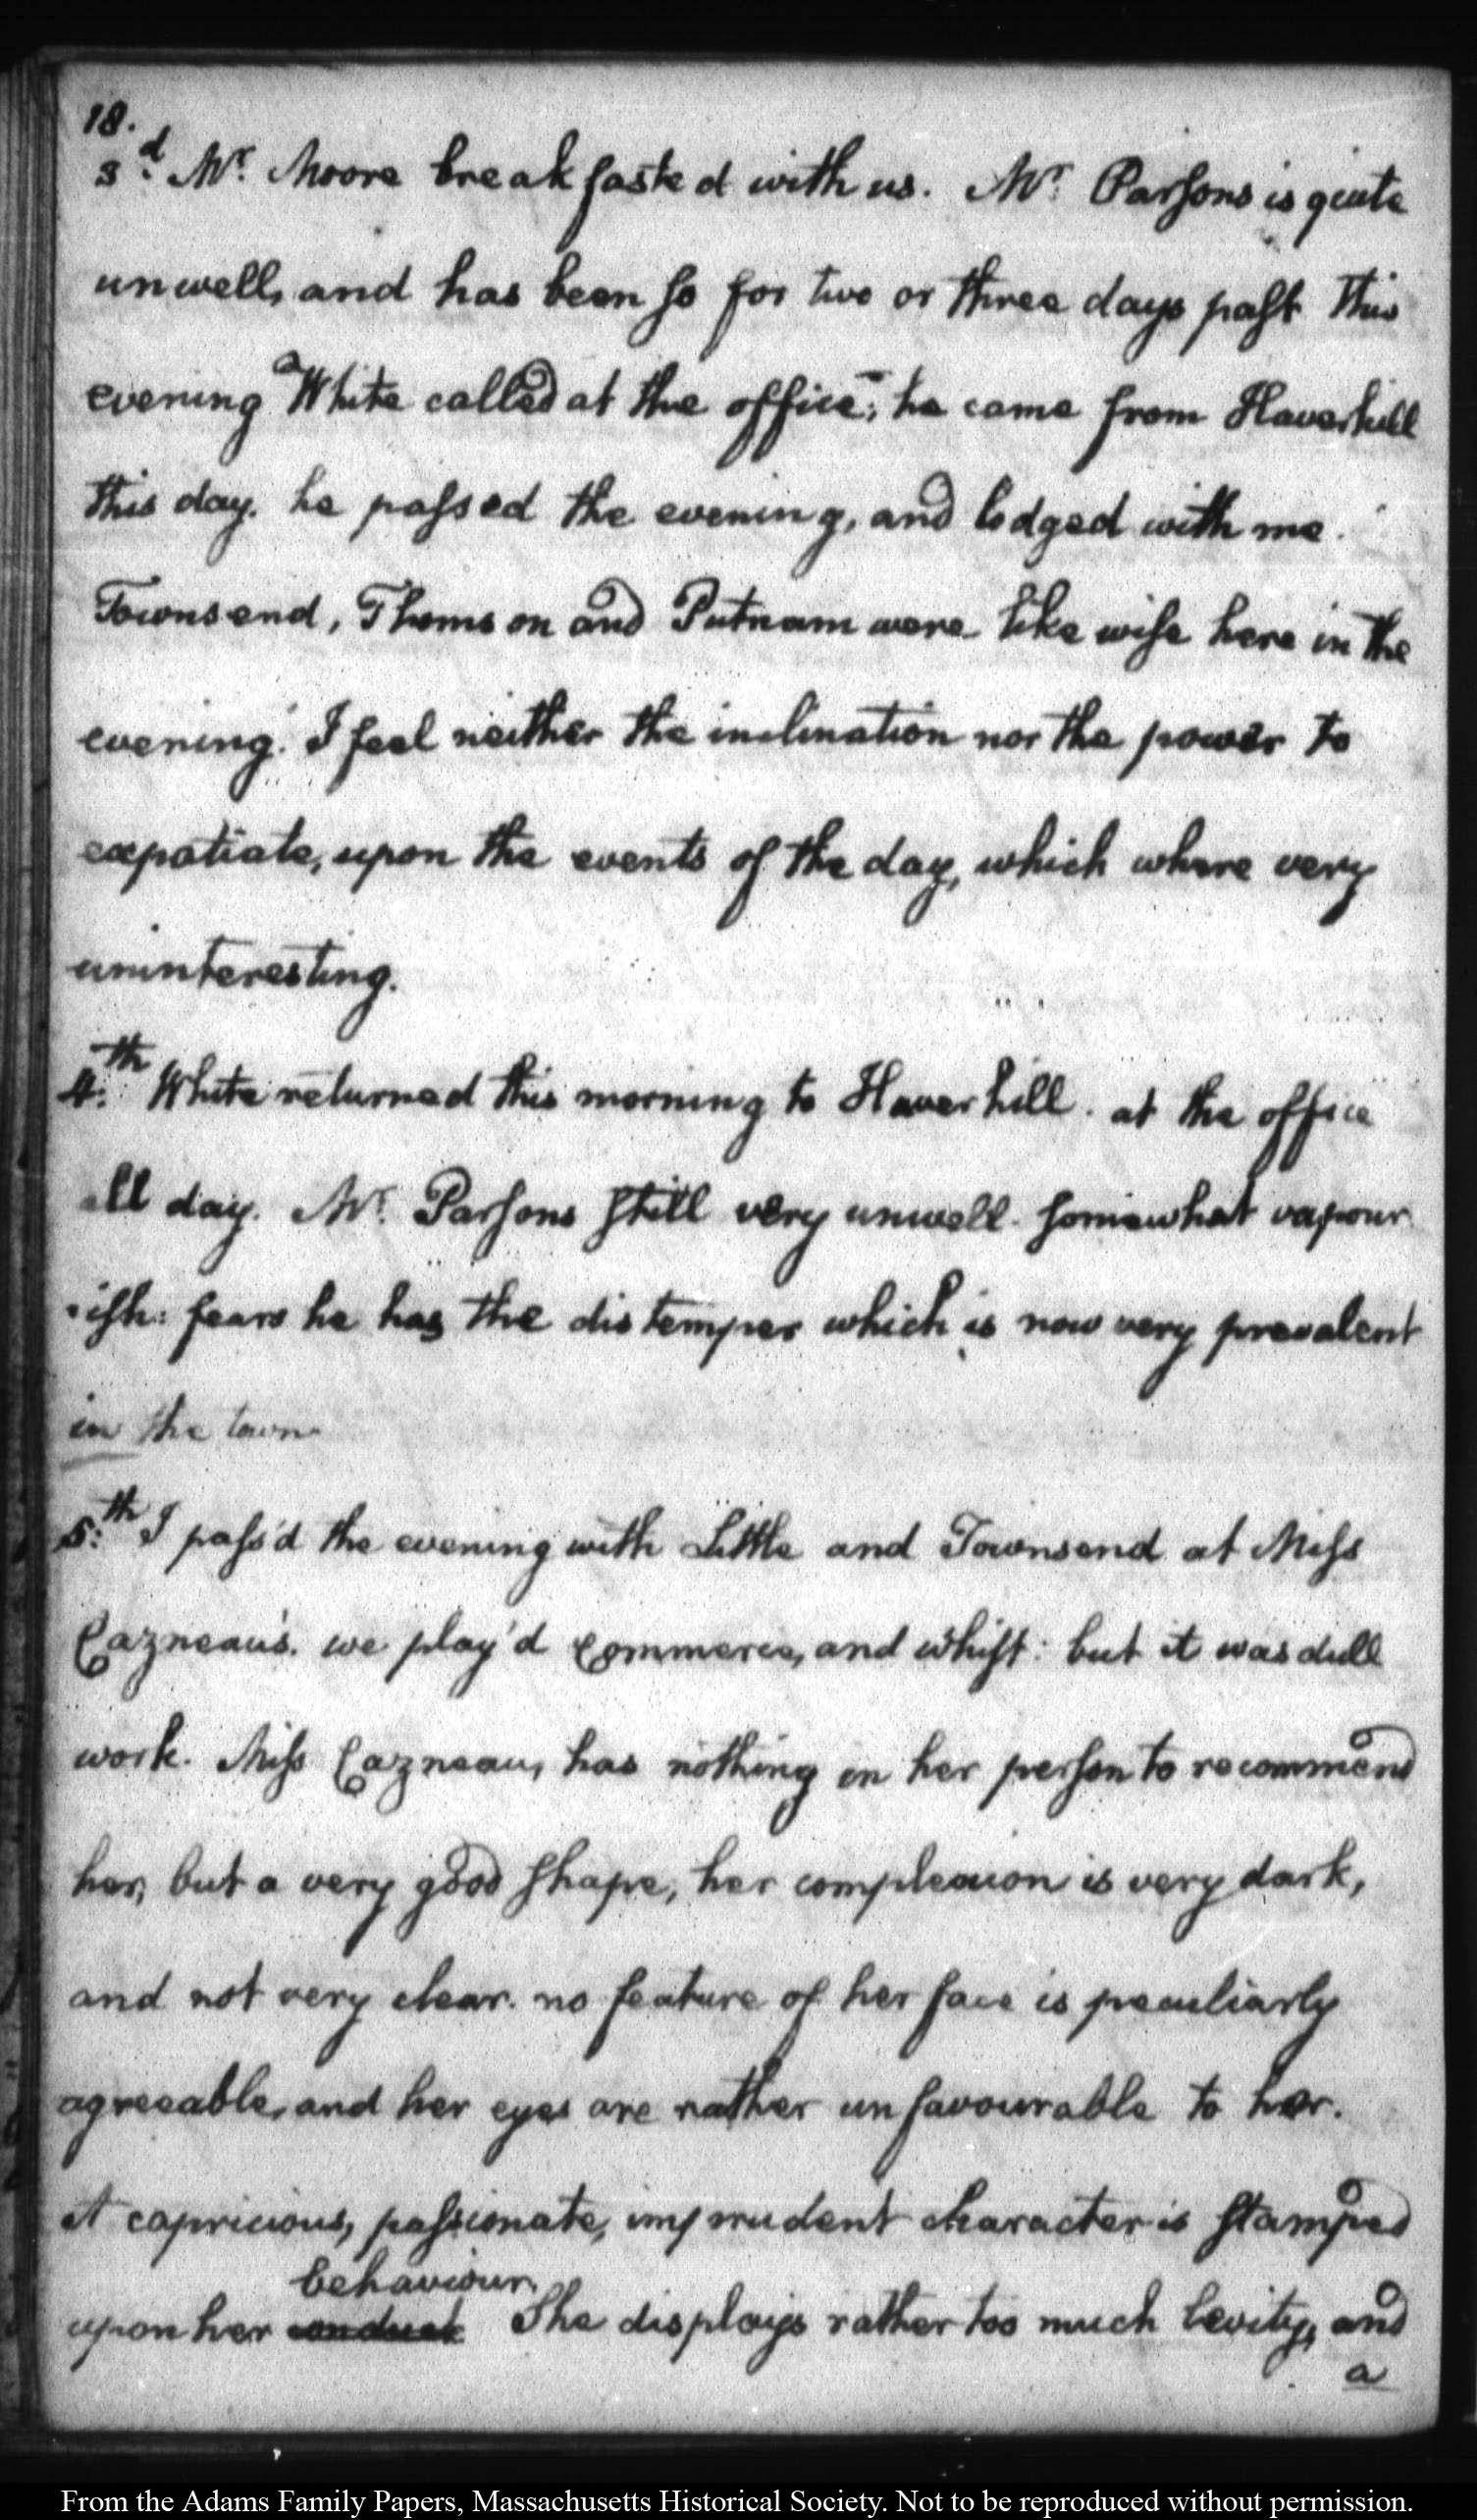 18.
3.d Mr. Moore breakfasted with us. Mr. Parsons is quite
unwell, and has been so for two or three days past This
evening White called at the office; he came from Haverhill
this day. he passed the evening, and lodged with me.
Townsend, Thomson and Putnam were likewise here in the
evening. I feel neither the inclination nor the power to
expatiate, upon the events of the day, which where very
uninteresting.
4.th White returned this morning to Haverhill. at the office
all day. Mr. Parsons still very unwell. somewhat vapour
-ish: fears he has the distemper which is now very prevalent
in the town
5.th I pass'd the evening with Little and Townsend at Miss
Cazneau's. we play'd Commerce, and whist: but it was dull
work. Miss Cazneau, has nothing in her person to recommend
her, but a very good shape, her complexion is very dark,
and not very clear. no feature of her face is peculiarly
agreeable, and her eyes are rather unfavourable to her.
A capricious, passionate, imprudent character is stamped
behaviour.
upon her conduct She displays rather too much levity, and
a
From the Adams Family Papers, Massachusetts Historical Society. Not to be reproduced without permission.